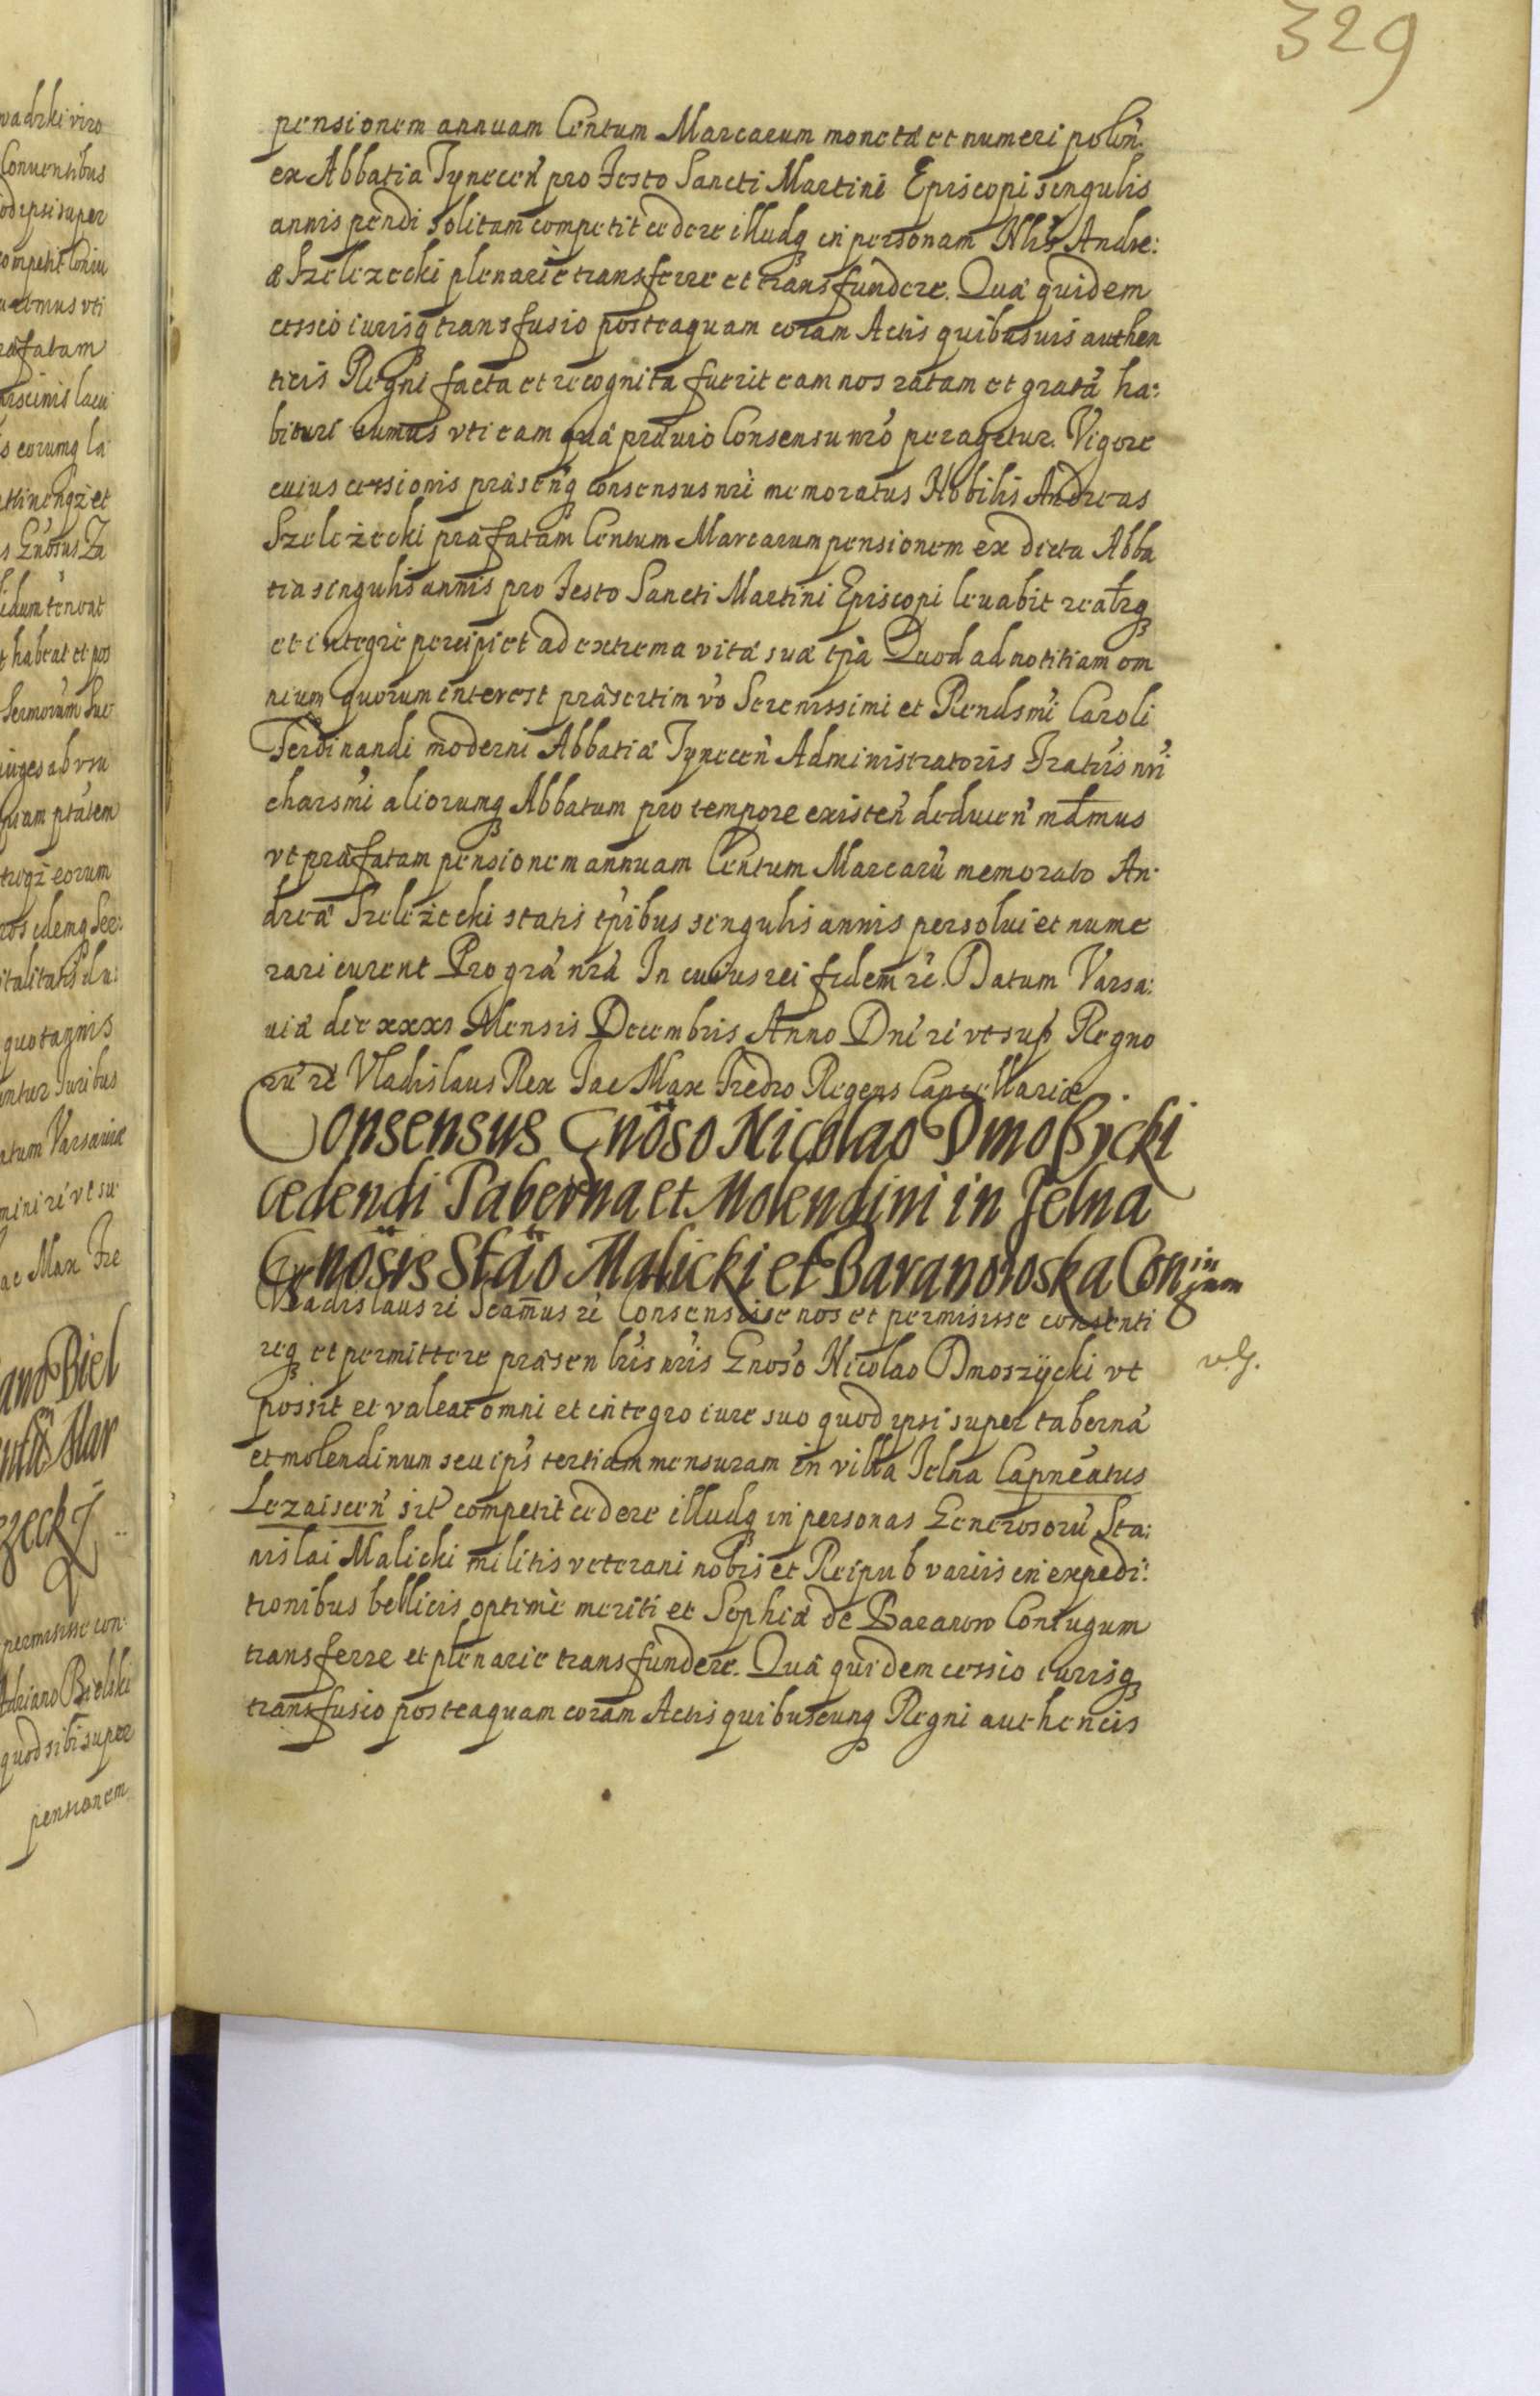 329
pensionem annuam Centum Marcarum monetæ et numeri polon̄.
ex Abbatia Tynecen̄ pro Festo Sancti Martini Episcopi singulis
annis pendi solitam competit cedere illudq3 in personam Nlis Andre:
æ Szelezecki plenariè transferre et transfundere. Quæ quidem
cessio iurisq3 transfusio posteaquam coram Actis quibusuis authen
ticis Regni facta et recognita fuerit eam nos ratam et gratā ha:
bituri sumus vti eam quæ præuio Consensu nr̄o peragetur. Vigore
cuius cessionis præsenq3 consensus nr̄i memoratus Nobilis Andreas
Szeleżecki præfatam Centum Marcarum pensionem ex dicta Abba
tia singulis annis pro Festo Sancti Martini Episcopi leuabit realrq3
et integrè percipiet ad extrema vitæ suæ tp̄a Quod ad notitiam om
nium quorum interest præsertim v̄o Serenissimi et Rendsmi Caroli
Ferdinandi moderni Abbatiæ Tynecen̄ Administratoris Fratris nr̄i
charsmi aliorumq3 Abbatum pro tempore existen̄ deducen̄ mdmus
vt præfatam pensionem annuam Centum Marcarū memorato An
dreæ Szeleżecki statis tp̄ibus singulis annis persolui et nume
rari curent Pro gr̄a nr̄a In cuius rei fidem rē. Datum Varsa:
uiæ die xxxi Mensis Decembris Anno Dni rē vt sup̄ Regno
rū rē Vladislaus Rex Jac Max Fredro Regens Cancellariæ.
Consensus Gnoso Nicolao Dmoßycki
cedendi Taberna et Molendini in Jelna
Gnosis Stāo Malicki et Baranowska Coniugum
Vladislaus rē Scamus rē Consensisse nos et permisisse consenti
req3 et permittere præsen l̄ris nr̄is Gnoso Nicolao Dmoszycki vt
v. G.
possit et valeat omni et integro iure suo quod ipsi super tabernā
et molendinum seu ip̄s tertiam mensuram in villa Jelna Capneatus
Lezaiscen̄ sit competit cedere illudq3 in personas Generosorū Sta:
nislai Malicki militis veterani nobis et Reipub variis in expedi:
tionibus bellicis optimè meriti et Sophiæ de Baranow Coniugum
transferre et plenarie transfundere. Quæ quidem cessio iurisq3
transfusio posteaquam coram Actis quibuscunq3 Regni authencis